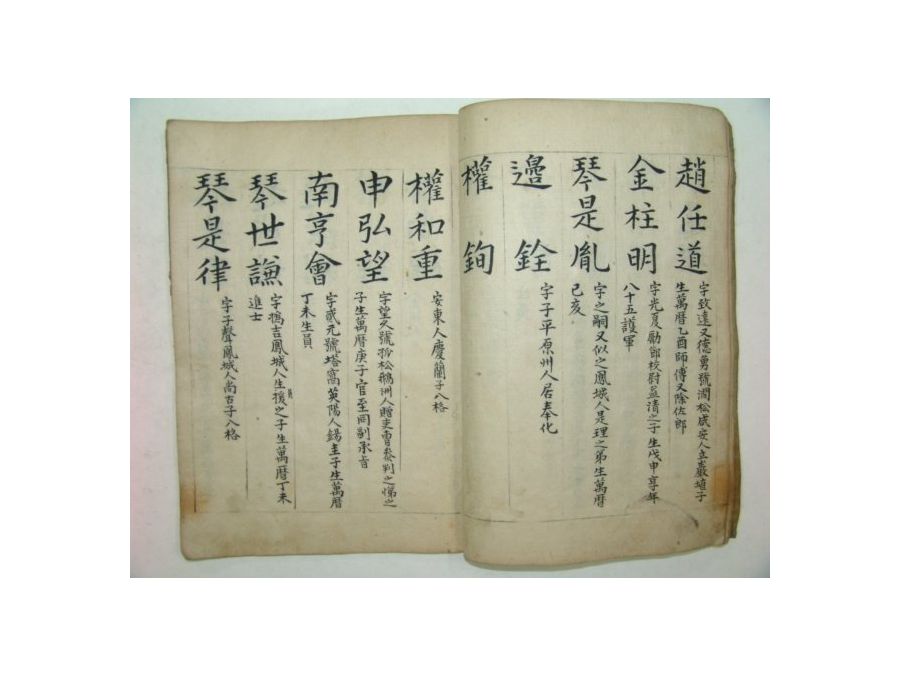 趙任道
字致遠又德勇號澗松咸安人立巖埴子
生萬曆乙酉師傅又除佐郎
金柱明
字光夏勵節校尉益清之子生戊申享年
八十五護軍
琴是胤
字之嗣又似之鳳城人是理之弟生萬曆
己亥
邊銓
字子平原州人居奉化
權鉤
權和重
安東人慶蘭子八格
申弘望
字望久號孤松鵝洲人贈吏曹參判之悌之
子生萬曆庚子官至司副承旨
南亨會
字貳元號塔窩英陽人鍚圭子生萬曆
丁未生員
琴世謙
字撝吉鳳城人生員援之子生萬曆丁未
進士
琴是律
字子聲鳳城人尚古子八格